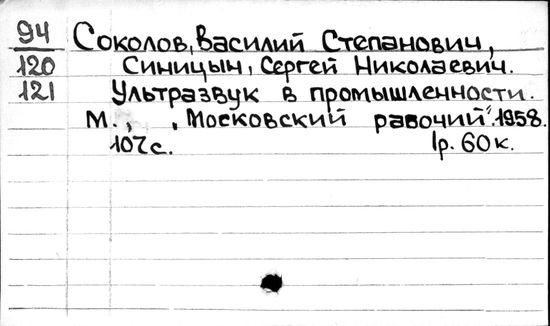 94 Соколов, Василий Степанович,
120 Синицын, Сергей Николаевич.
121 Ультразвук в промышленности.
М., „Московский рабочий". 1958.
107с. 1р. 60к.